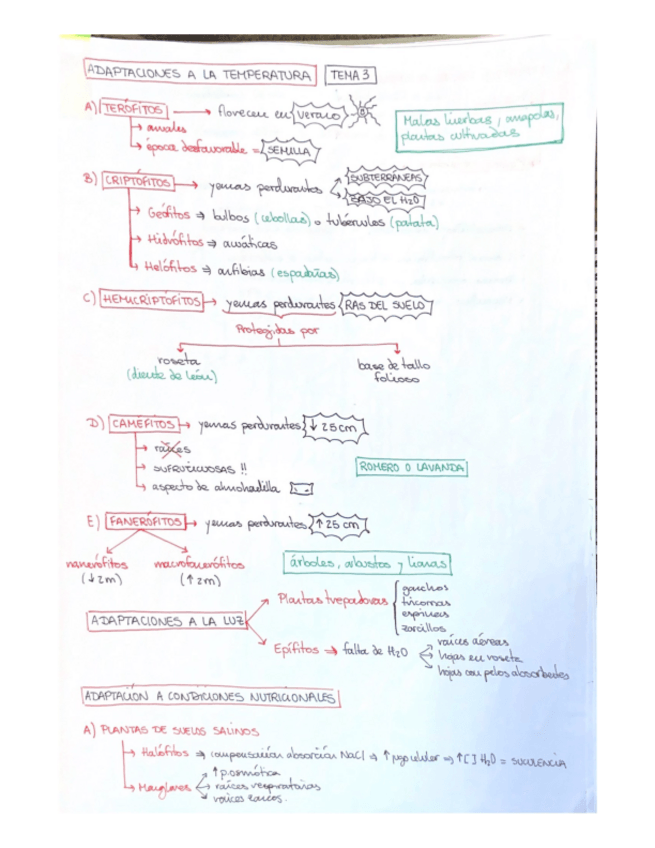 ADAPTACIONES A LA TEMPERATURA TEMA 3
A) TERÓFITOS → florecen en VERANO
→ anuales
→ época desfavorable = SEMILLA
Malas hierbas, amapolas,
plantas cultivadas
B) CRIPTÓFITOS → yemas perdurantes
SUBTERRÁNEAS
BAJO EL H2O
→ Geófitos ⇒ bulbos (cebollas) o tubérculos (patata)
→ Hidrófitos ⇒ acuáticas
→ Helófitos ⇒ anfibias (espadañas)
C) HEMICRIPTÓFITOS → yemas perdurantes RAS DEL SUELO
Protegidas por
roseta
(diente de león)
base de tallo
folioso
D) CAMÉFITOS → yemas perdurantes ↓ 25 cm
→ raíces
→ SUFRUTICOSAS !!
→ aspecto de almohadilla
ROMERO O LAVANDA
E) FANERÓFITOS → yemas perdurantes ↑ 25 cm
nanerófitos
(↓ 2m)
macrofanerófitos
(↑ 2m)
árboles, arbustos y lianas
ADAPTACIONES A LA LUZ
Plantas trepadoras
ganchos
espinas
zarcillos
Epífitos ⇒ falta de H2O
raíces aéreas
hojas en roseta
hojas con pelos absorbentes
ADAPTACIÓN A CONDICIONES NUTRICIONALES
A) PLANTAS DE SUELOS SALINOS
→ Halófitos ⇒ compensación absorción NaCl ⇒ ↑ jugo celular ⇒ ↑[] H2O = SUCULENCIA
→ Manglares
↑ p.osmótica
raíces respiratorias
raíces zancos.